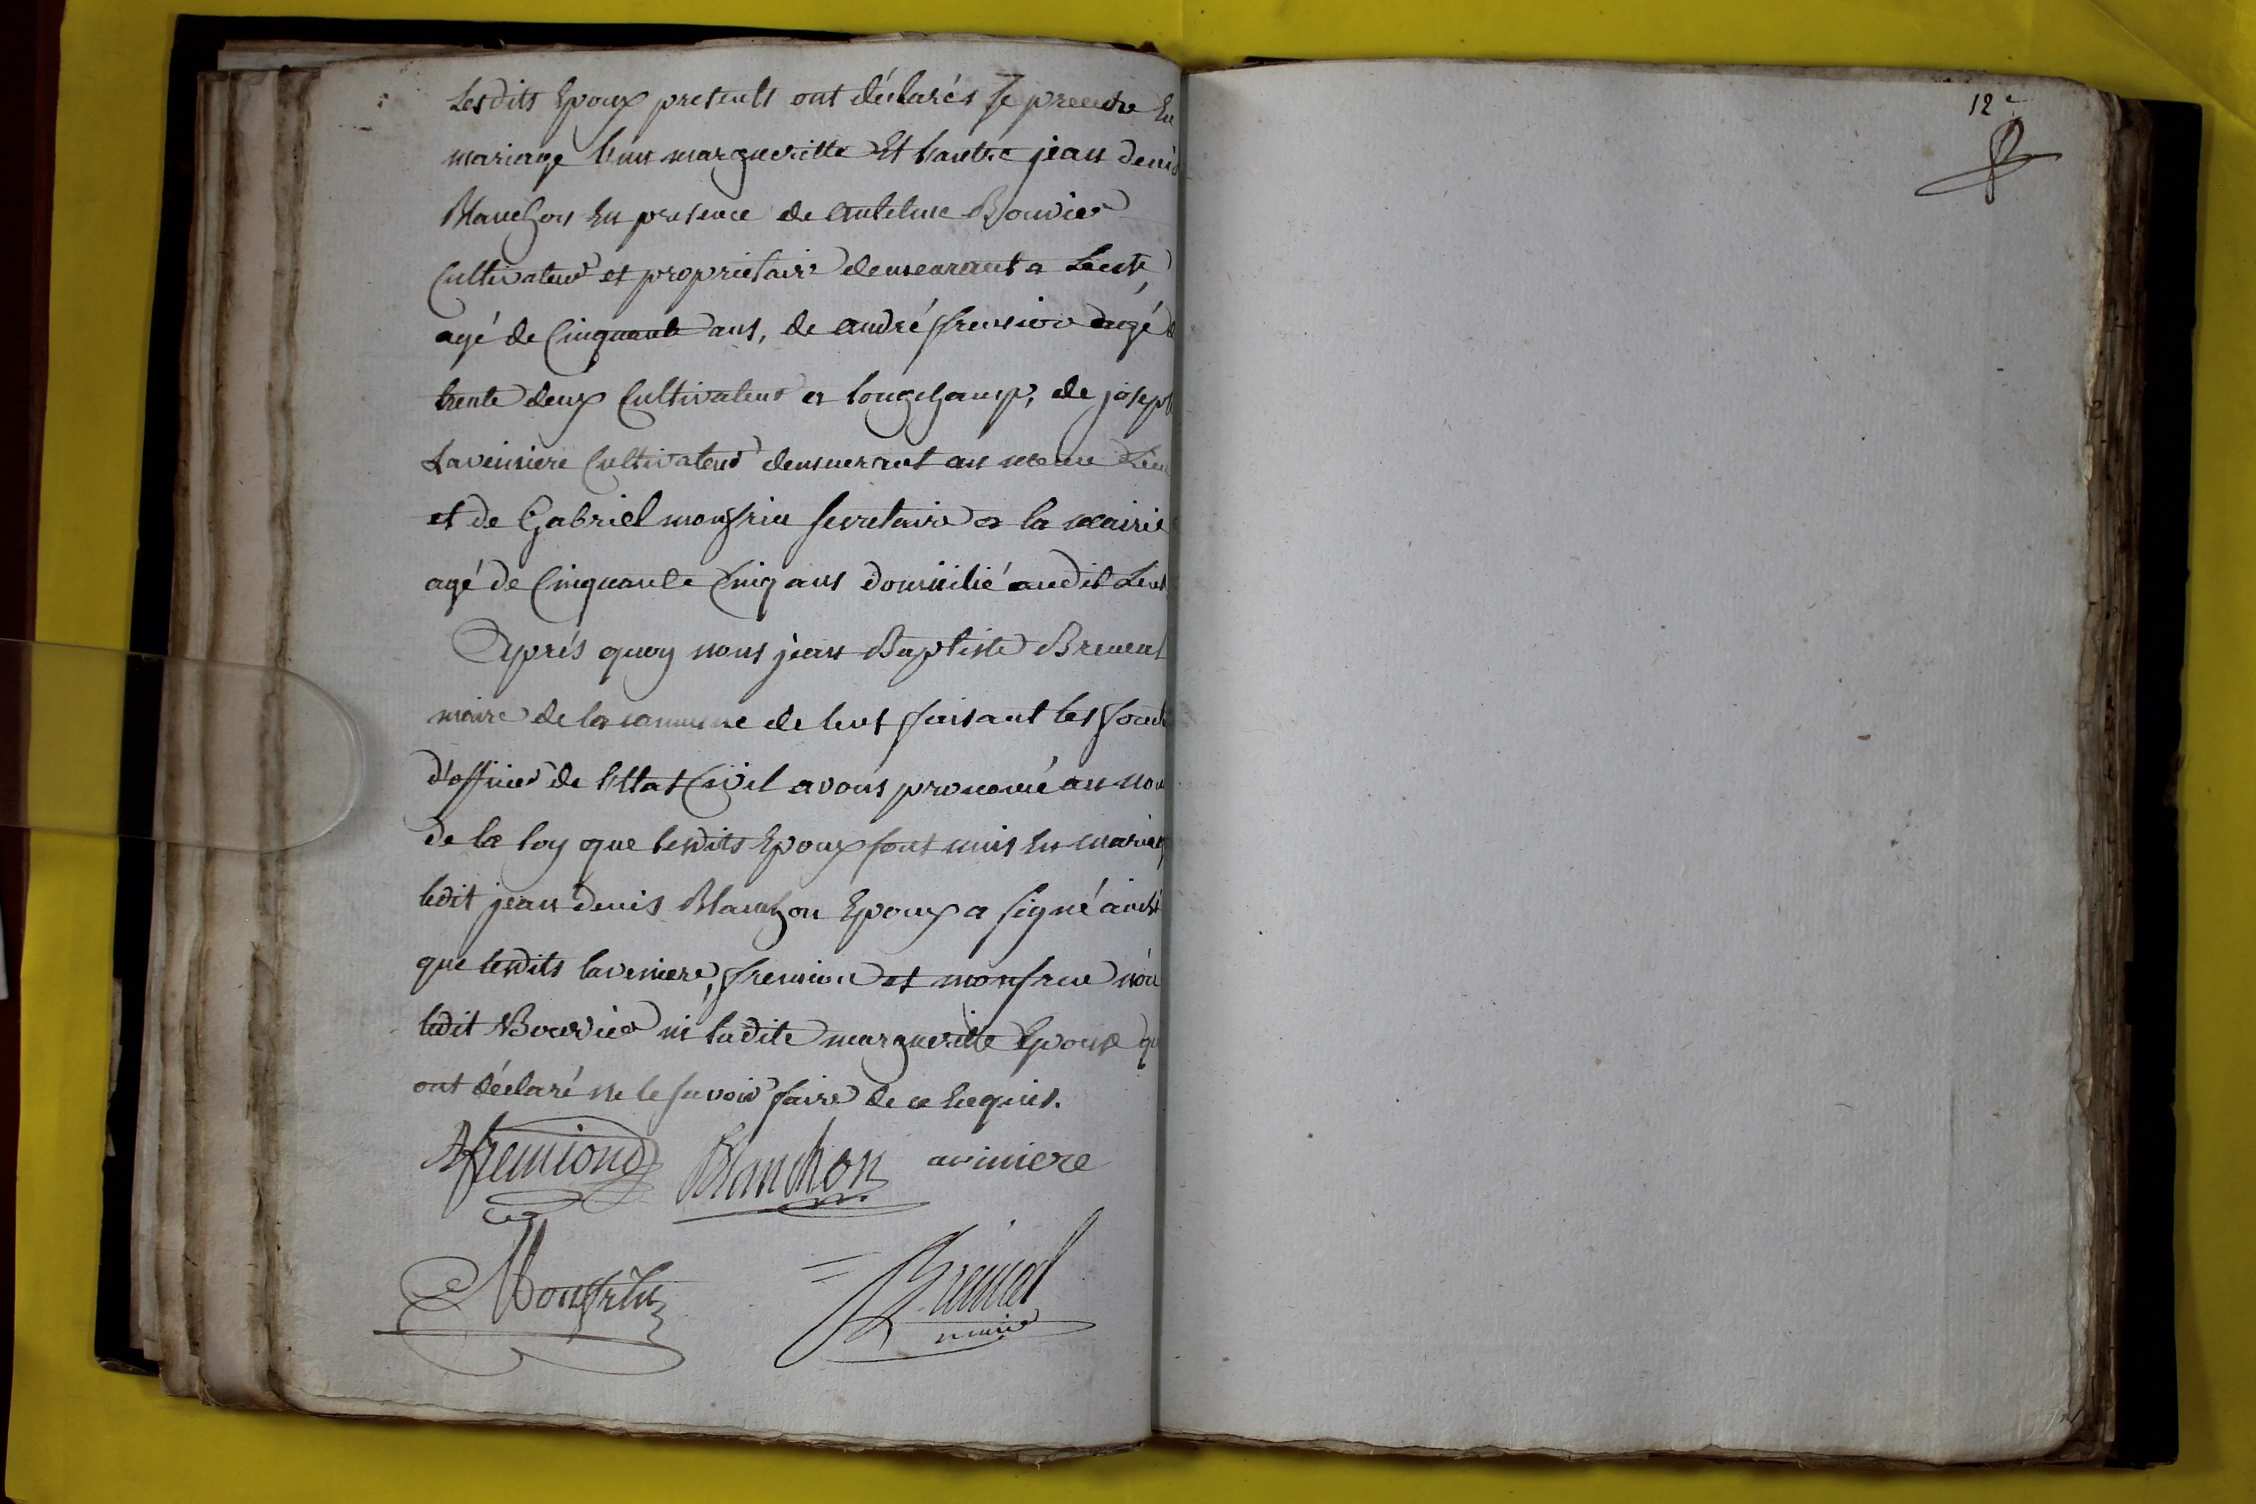 Lesdits Epoux presents ont déclarés se prendre En
mariage l'un margueritte Et l'autre jean denis
Blanchon En presence de antelme Bouvier
Cultivateur et proprietaire demeurant a
agé de Cinquante ans, de andré fremion agé d
trente deux Cultivateur a longchamp, de joseph
Laveniere Cultivateur demeurant au meme Lieu
et de Gabriel monfrin secretaire a la mairie
agé de Cinquante Cinq ans domicilié audit
Après quoy nous jean Baptiste
maire de la commune de faisant les fonct
d'officier de l'Etat Civil avons prononcé au nom
de la loy que lesdits Epoux sont unis En mariag
ledit jean denis Blanchon Epoux a signé ainsi
que lesdits laveniere, fremion et monfrin non
ledit Bouvier ni ladite margueritte Epouse qu
ont déclaré ne le savoir faire de ce Enquis.
A fremiond Blanchon aviniere
Monfrin
maire
12e